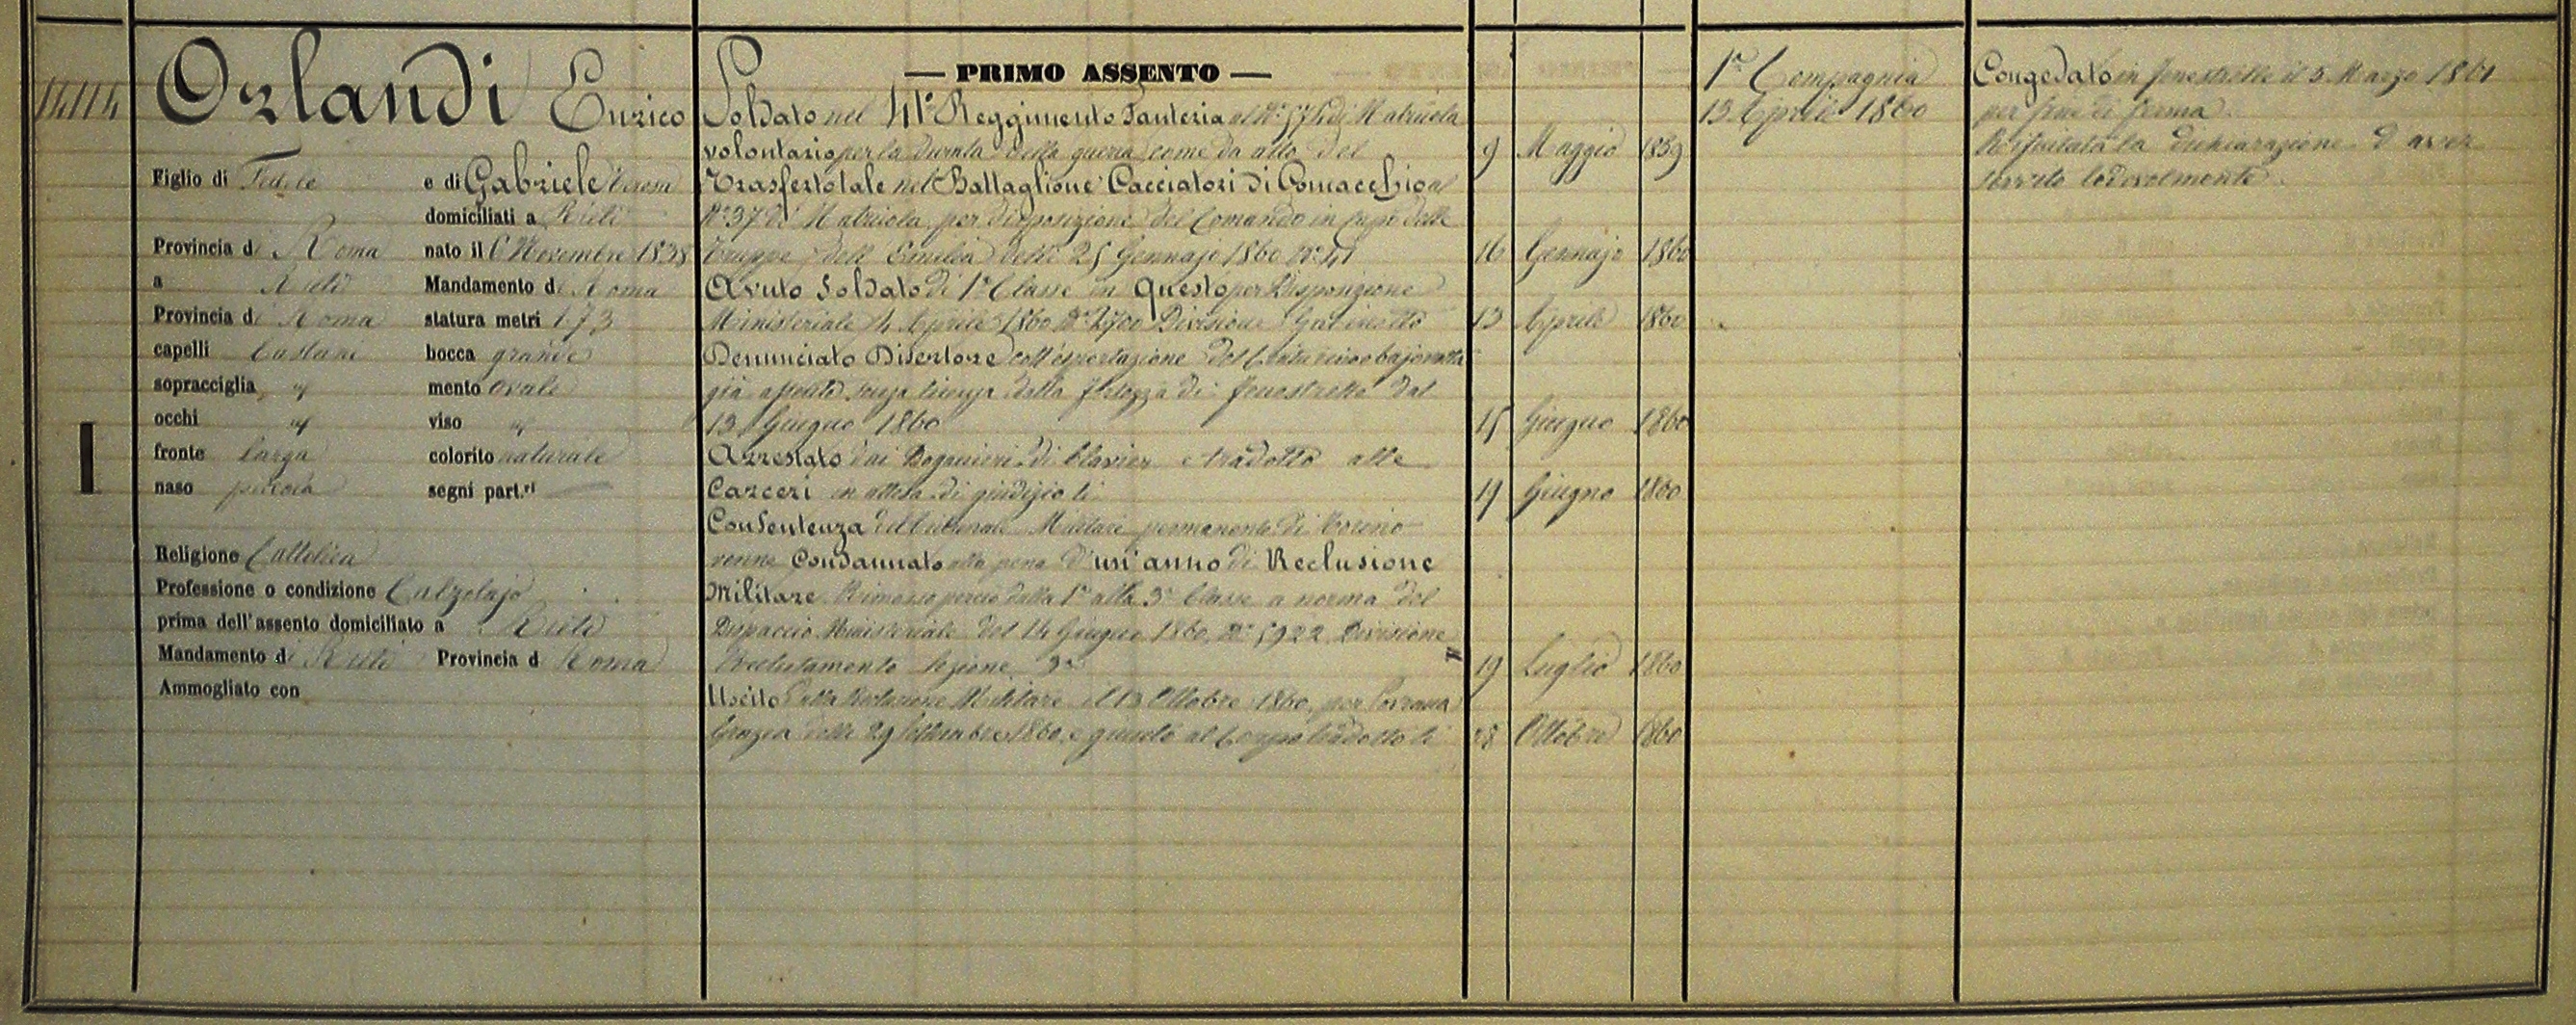 Orlandi Enrico
Figlio di Fedele e di Gabriele Teresa
domiciliati a Rieti
Provincia di Roma nato il 6 Novembre 1838
a Rieti Mandamento di Roma
Provincia di Roma statura metri 1.73
capelli Castani bocca grande
sopracciglia " mento ovale
occhi " viso "
fronte larga colorito naturale
naso segni part.ri —
Religione Cattolica
Professione o condizione Calzolajo
prima dell'assento domiciliato a Rieti
Mandamento di Rieti Provincia d Roma
Ammogliato con
— PRIMO ASSENTO —
Soldato nel 41° Reggimento Fanteria al N° di Matricola
volontario per la durata della guerra come da atto del 9 Maggio 1859
Trasferto tale nel Battaglione Cacciatori di Comacchio al
N° 37 di Matricola per disposizione del Comando in capo delle
Truppe dell'Emilia delli 25 Gennajo 1860 N° 41 16 Gennajo 1860
Avuto Soldato di 1a Classe in Questo per Disposizione
Ministeriale 4 Aprile 1860 N° 2700 Divisione Gabinetto 13 Aprile 1860
Denunciato Disertore coll'esportazione del Centurino e bajonetta
già assento senza licenza dalla fortezza di fenestrelle dal
13 Giugno 1860 15 Giugno 1860
Arrestato dai Doganieri di Clavier e tradotto alle
Carceri in attesa di giudizio li 19 Giugno 1860
Con Sentenza del Tribunale Militare permanente di Torino
venne Condannato alla pena d'un'anno di Reclusione
Militare. Rimosso perciò dalla 1a alla 3a Classe a norma del
Dispaccio Ministeriale del 14 Giugno 1860 N° 5922 Divisione
Reclutamento Sezione 3a 19 Luglio 1860
Uscito dalla Reclusione Militare il 13 Ottobre 1860, per Sovrana
Grazia delli 29 Settembre 1860, e giunto al Corpo tradotto li 28 Ottobre 1860
1a Compagnia
13 Aprile 1860
Congedato in fenestrelle il 5 Marzo 1861
per fine di ferma
la dichiarazione d'aver
servito lodevolmente